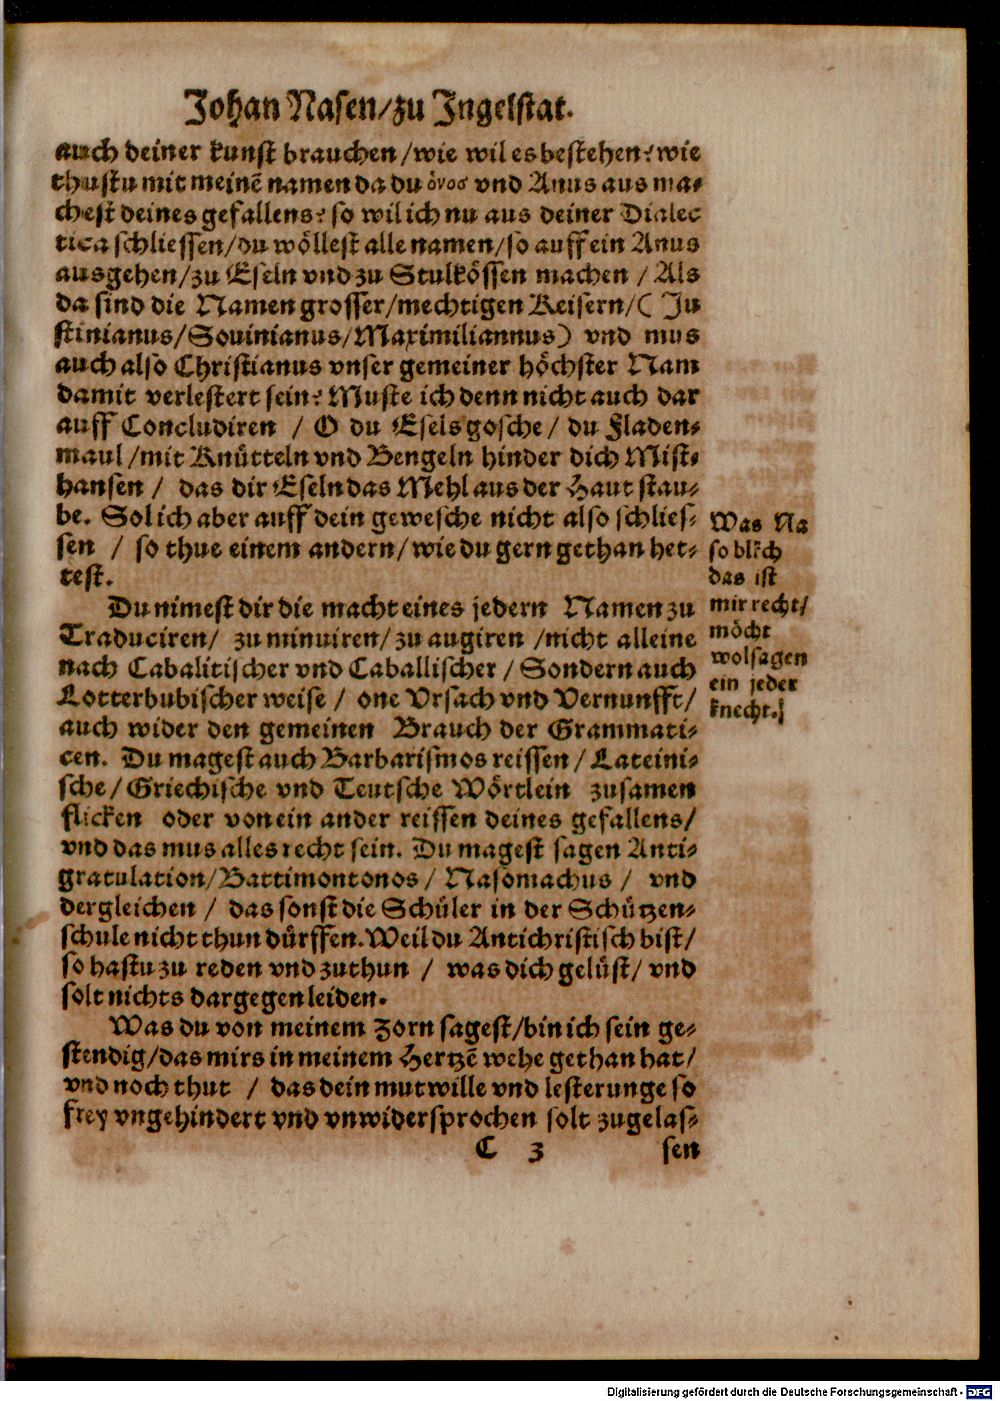 Johan Nasen/zu Ingelstat.
auch deiner kunst brauchen/wie wil es bestehen? wie
thustu mit meinē namen da du ὄνος vnd Anus aus ma⸗
chest deines gefallens? so wil ich nu aus deiner Dialec
tica schliessen/du wöllest alle namen/so auff ein Anus
ausgehen/zu Eseln vnd zu Stulkössen machen / Als
da sind die Namen grosser/mechtigen Keisern/( Ju
stinianus/Souinianus/Maximiliannus) vnd mus
auch also Christianus vnser gemeiner höchster Nam
damit verlestert sein? Muste ich denn nicht auch dar
auff Concludiren / O du Esels gosche/ du Fladen⸗
maul/mit Knütteln vnd Bengeln hinder dich Mist⸗
hansen / das dir Eseln das Mehl aus der Haut stau⸗
be. Sol ich aber auff dein gewesche nicht also schlies⸗
sen / so thue einem andern/wie du gern gethan het⸗
test.
Du nimest dir die macht eines jedern Namen zu
Traduciren/ zu minuiren/zu augiren /nicht alleine
nach Cabalitischer vnd Caballischer/ Sondern auch
Lotterbubischer weise / one Vrsach vnd Vernunfft/
auch wider den gemeinen Brauch der Grammati⸗
cen. Du magest auch Barbarismos reissen/ Lateini⸗
sche/ Griechische vnd Teutsche Wörtlein zusamen
flicken oder von ein ander reissen deines gefallens/
vnd das mus alles recht sein. Du magest sagen Anti⸗
gratulation/Battimontonos/ Nasomachus / vnd
dergleichen / das sonst die Schüler in der Schützen⸗
schule nicht thun dürffen. Weil du Antichristisch bist/
so hastu zu reden vnd zuthun / was dich gelüst/ vnd
solt nichts dargegen leiden.
Was du von meinem Zorn sagest/bin ich sein ge⸗
stendig/das mirs in meinem Hertzē wehe gethan hat/
vnd noch thut / das dein mutwille vnd lesterunge so
frey vngehindert vnd vnwidersprochen solt zugelas⸗
C 3 sen
Was Na
so blech
das ist
mir recht/
möcht
wol sagen
ein jeder
knecht.
Digitalisierung gefördert durch die Deutsche Forschungsgemeinschaft - DFG